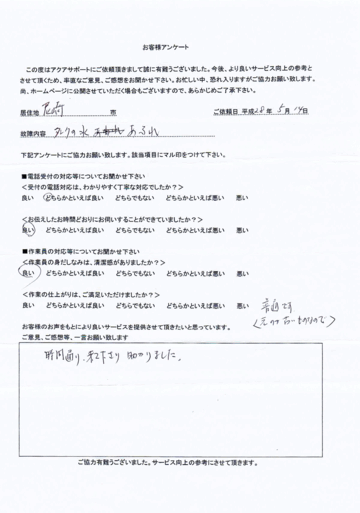 お客様アンケート
この度はアクアサポートにご依頼頂きまして誠に有難うございました。今後、より良いサービス向上の参考と
させて頂くため、率直なご意見、ご感想をお聞かせ下さい。お忙しい中、恐れ入りますがご協力お願い致します。
尚、ホームページに公開させていただく場合もございますので、あらかじめご了承下さい。
居住地 尼崎 市 ご依頼日 平成28年 5月 14日
故障内容 タンクの水 あふれ
下記アンケートにご協力お願い致します。該当項目にマル印をつけて下さい。
■電話受付の対応等についてお聞かせ下さい
＜受付の電話対応は、わかりやすく丁寧な対応でしたか？＞
良い どちらかといえば良い どちらでもない どちらかといえば悪い 悪い
＜お伝えしたお時間どおりにお伺いすることができていましたか？＞
良い どちらかといえば良い どちらでもない どちらかといえば悪い 悪い
■作業員の対応等についてお聞かせ下さい
＜作業員の身だしなみは、清潔感がありましたか？＞
良い どちらかといえば良い どちらでもない どちらかといえば悪い 悪い
＜作業の仕上がりは、ご満足いただけましたか？＞
良い どちらかといえば良い どちらでもない どちらかといえば悪い 悪い
普通です
お客様のお声をもとにより良いサービスを提供させて頂きたいと思っています。
ご意見、ご感想等、一言お願い致します
時間通り、来て下さり 助かりました。
ご協力有難うございました。サービス向上の参考にさせて頂きます。